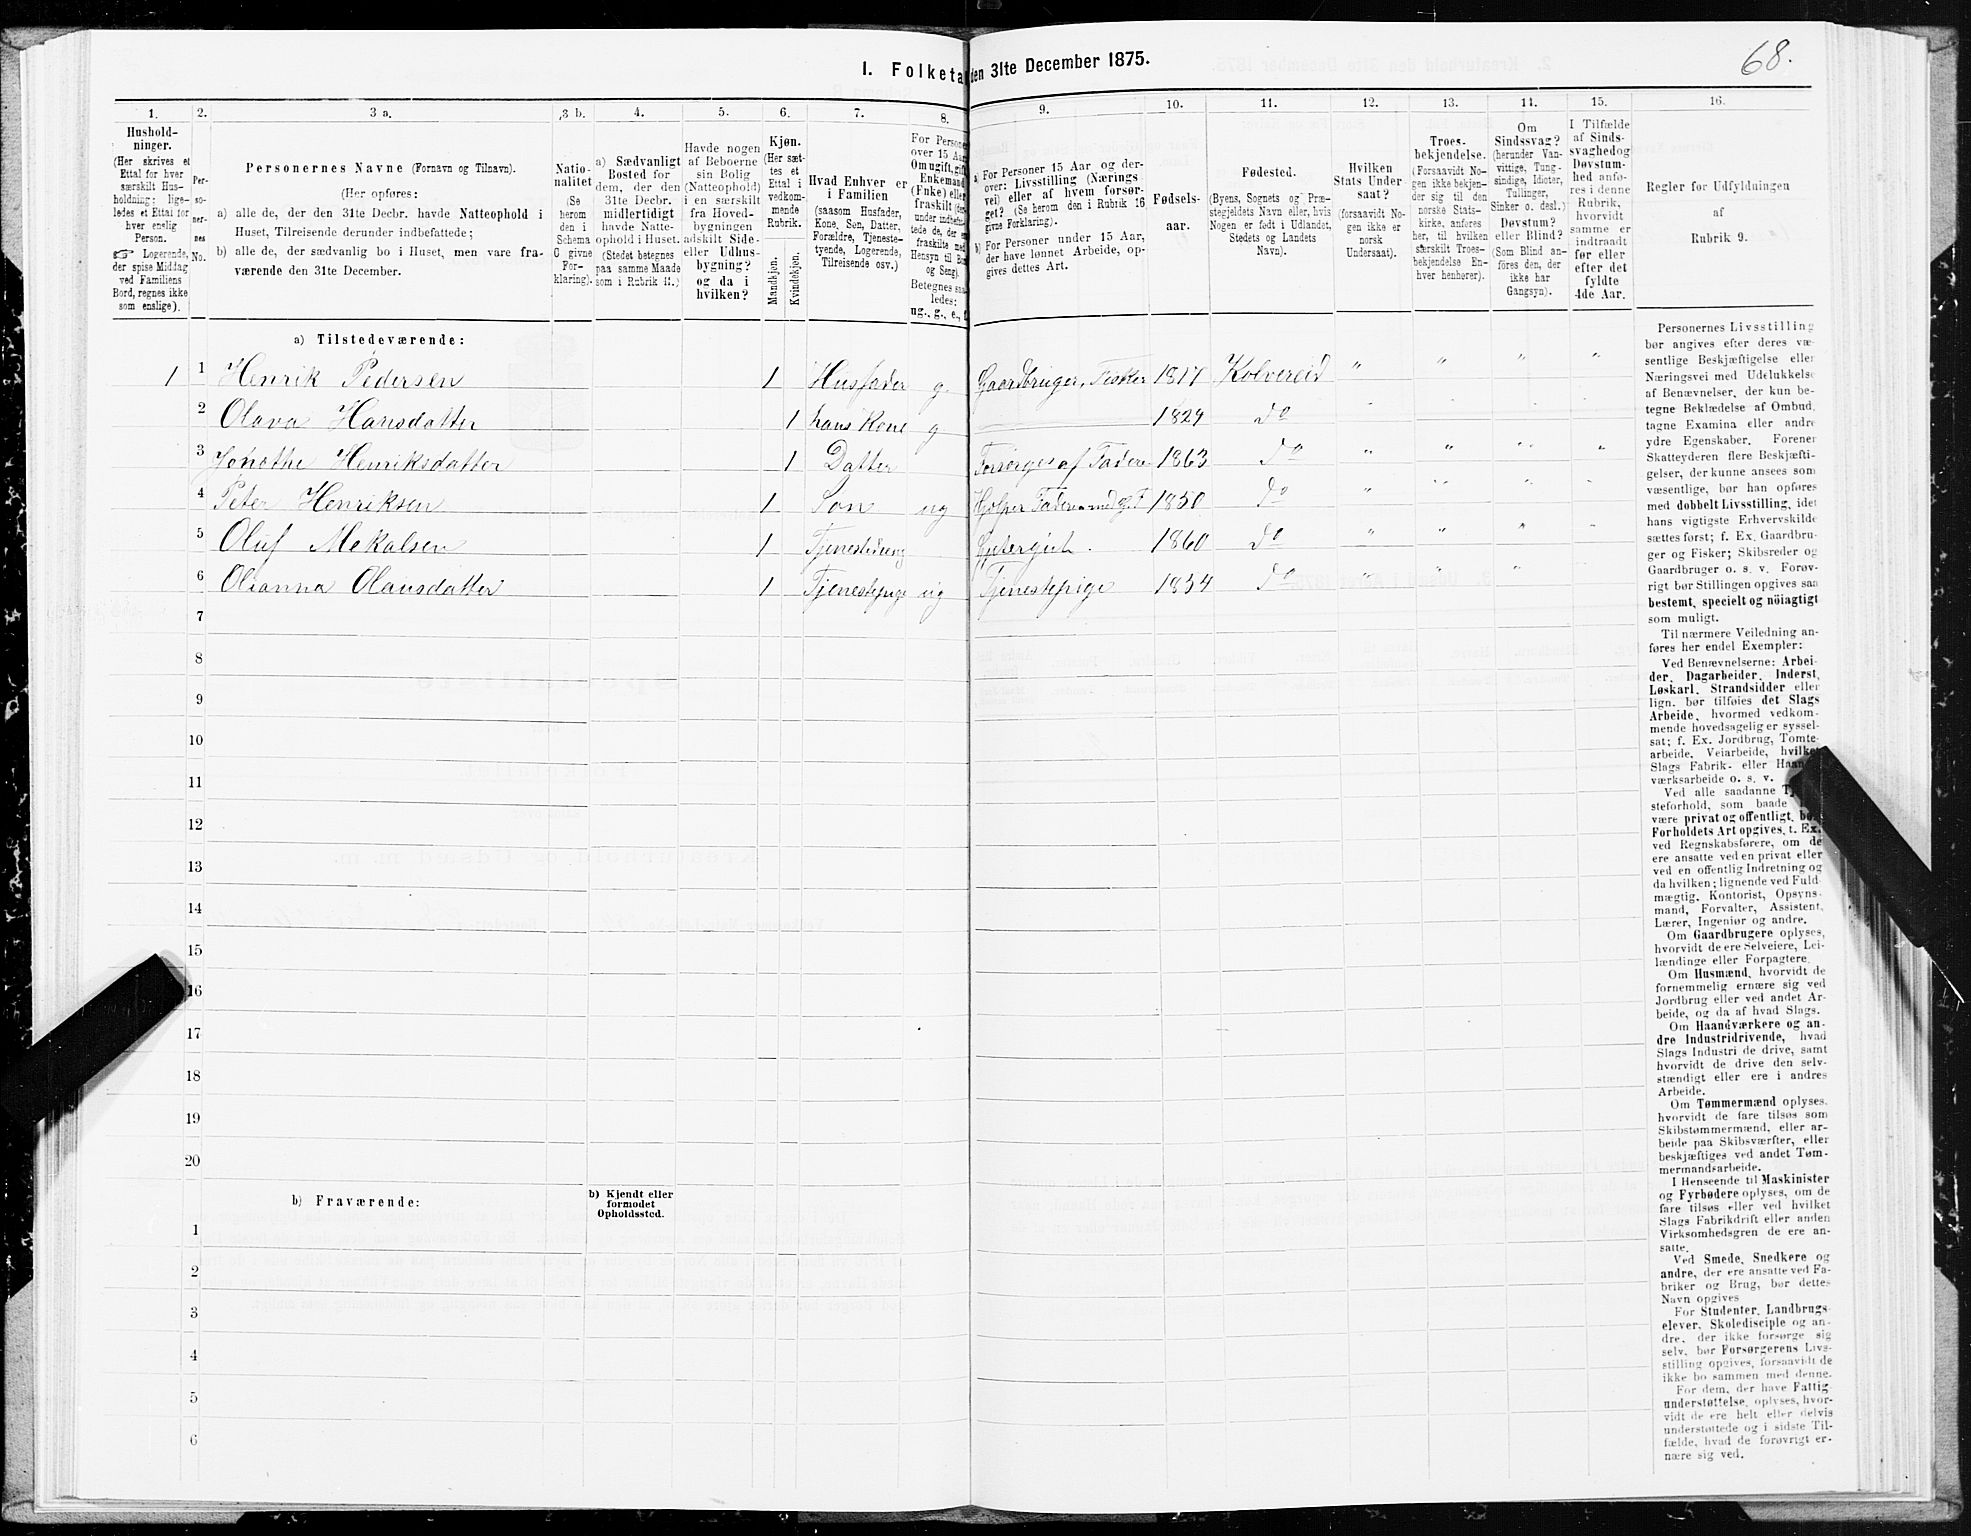 68.
I. Folketæ den 31te December 1875.
1. 2. 3 a. 3 b. 4. 5. 6. 7. 8. 9. 10. 11. 12. 13. 14. 15. 16.
Hushold-
ninger.
(Her skrives et
Ettal for hver
særskilt Hus-
holdning; lige-
ledes et Ettal for
hver enslig
Person.
☞ Logerende,
der spise Middag
ved Familiens
Bord, regnes ikke
som enslige).
Per-
so-
ner-
nes
No.
Personernes Navne (Fornavn og Tilnavn).
(Her opføres:
a) alle de, der den 31te Decbr. havde Natteophold i
Huset, Tilreisende derunder indbefattede;
b) alle de, der sædvanlig bo i Huset, men vare fra-
værende den 31te December.
Natio-
nalitet
(Se
herom
den i
Schema
C givne
For-
klaring).
a) Sædvanligt
Bosted for
dem, der den
31te Decbr.
midlertidigt
havde Natte-
ophold i Huset.
(Stedet betegnes
paa samme Maade
som i Rubrik 11.)
Havde nogen
af Beboerne
sin Bolig
(Natteophold)
i en særskilt
fra Hoved-
bygningen
adskilt Side-
eller Udhus-
bygning?
og da i
hvilken?
Kjøn.
(Her sæt-
tes et
Ettal i
vedkom-
mende
Rubrik.
Mandkjøn.
Kvindekjøn.
Hvad Enhver er
i Familien
(saasom Husfader,
Kone, Søn, Datter,
Forældre, Tjeneste-
tyende, Logerende,
Tilreisende osv.)
For Persone
over 15 Aar
Om ugift, gift,
Enkemand
(Enke) eller
fraskilt
Betegnes saa-
ledes:
ug., g., e., f.
a) For Personer 15 Aar og der-
over: Livsstilling (Nærings-
vei) eller af hvem forsør-
get? (Se herom den i Rubrik 16
givne Forklaring).
b) For Personer under 15 Aar,
der have lønnet Arbeide, op-
gives dettes Art.
Fødsels-
aar.
Fødested.
(Byens, Sognets og Præ-
stegjeldets Navn eller, hvis
Nogen er født i Udlandet,
Stedets og Landets
Navn).
Hvilken
Stats Under-
saat?
(forsaavidt No-
gen ikke er
norsk
Undersaat).
Troes-
bekjendelse.
(Forsaavidt No-
gen ikke bekjen-
der sig til den
norske Stats-
kirke, anføres
her, til hvilken
særskilt Troes-
bekjendelse En-
hver henhører).
Om
Sindssvag?
(herunder Van-
vittige, Tung-
sindige, Idioter,
Tullinger,
Sinker o. desl.)
Døvstum?
eller Blind?
(Som Blind an-
føres den, der
ikke har
Gangsyn).
I Tilfælde
af Sinds-
svaghed og
Døvstum-
hed anfø-
res i denne
Rubrik,
hvorvidt
samme er
indtraadt
før eller
efter det
fyldte
4de Aar.
Regler for Udfyldningen
af
Rubrik 9.
a) Tilstedeværende:
1 1 Henrik Pedersen 1 Husfader g. Gaardbruger, Fisker 1817 Kolvereid " " " "
2 Olava Hansdatter 1 hans Kone g 1829 do
3 Jonethe Henriksdatter 1 Datter Forsørges af Fadere 1863 do " " " "
4 Peter Henriksen 1 Søn ug Hjelper Faderen med 1850 do
5 Oluf Mekalsen 1 1860 do
6 Olianna Olausdatter 1 Tjenestepige ug Tjenestepige 1854 do
7
8
9
10
11
12
13
14
15
16
17
18
19
20
b) Fraværende:
b) Kjendt eller
formodet
Opholdssted.
1
2
3
4
5
6
Personernes Livsstilling
bør angives efter deres væ-
sentlige Beskjæftigelse eller
Næringsvei med Udelukkelse
af Benævnelser, der kun be-
tegne Beklædelse af Ombud,
tagne Examina eller andre
ydre Egenskaber. Forener
Skatteyderen flere Beskjæfti-
gelser, der kunne ansees som
væsentlige, bør han opføres
med dobbelt Livsstilling, idet
hans vigtigste Erhvervskilde
sættes først; f. Ex. Gaardbru-
ger og Fisker; Skibsreder og
Gaardbruger o. s. v. Forøv-
rigt bør Stillingen opgives saa
bestemt, specielt og nöiagtigt
som muligt.
Til nærmere Veiledning an-
føres her endel Exempler:
Ved Benævnelserne: Arbei-
der, Dagarbeider, Inderst,
Løskarl, Strandsidder eller
lign. bør tilføies det Slags
Arbeide, hvormed vedkom-
mende hovedsagelig er syssel-
sat; f. Ex. Jordbrug, Tomte-
arbeide, Veiarbeide, hvilket
Slags Fabrik- eller Haand-
værksarbeide o. s. v.
Ved alle saadanne Tj
steforhold, som baade
være privat og offentligt, bør
Forholdets Art opgives, t. Ex.
ved Regnskabsførere, om de
ere ansatte ved en privat eller
ved en offentlig Indretning og
da hvilken; lignende ved Fuld-
mægtig, Kontorist, Opsyns-
mand, Forvalter, Assistent,
Lærer, Ingeniør og andre.
Om Gaardbrugere oplyses,
hvorvidt de ere Selveiere, Lei-
lændinge eller Forpagtere.
Om Husmænd, hvorvidt de
fornemmelig ernære sig ved
Jordbrug eller ved andet Ar-
beide, og da af hvad Slags.
Om Haandværkere og an-
dre Industridrivende, hvad
Slags Industri de drive, samt
hvorvidt de drive den selv-
stændigt eller ere i andres
Arbeide.
Om Tømmermænd oplyses,
hvorvidt de fare tilsøs som
Skibstømmermænd, eller ar-
beide paa Skibsværfter, eller
beskjæftiges ved andet Tøm-
mermandsarbeide.
I Henseende til Maskinister
og Fyrbødere oplyses, om de
fare tilsøs eller ved hvilket
Slags Fabrikdrift eller anden
Virksomhedsgren de ere an-
satte.
Ved Smede, Snedkere og
andre, der ere ansatte ved Fa-
briker og Brug, bør dettes
Navn opgives
For Studenter, Landbrugs-
elever, Skoledisciple og an-
dre, der ikke forsørge sig
selv, bør Forsørgerens Livs-
stilling opgives, forsaavidt de
ikke bo sammen med denne.
For dem, der have Fattig-
understøttelse, oplyses, hvor-
vidt de ere helt eller delvis
understøttede og i sidste Til-
fælde, hvad de forøvrigt er-
nære sig ved.